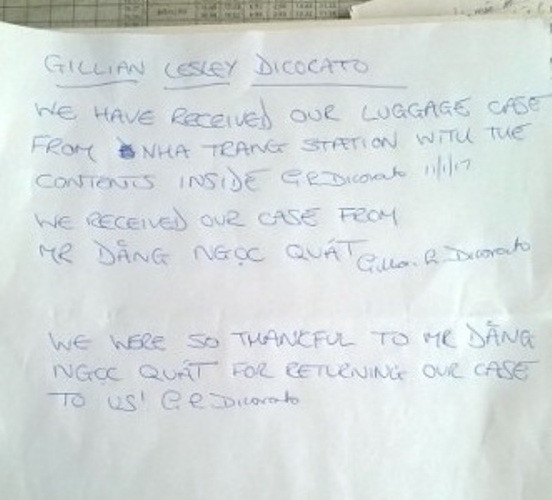 GILLIAN LESLEY DICORATO
WE HAVE RECEIVED OUR LUGGAGE CASE
FROM NHA TRANG STATION WITH THE
CONTENTS INSIDE G R Dicorato 11/1/17
WE RECEIVED OUR CASE FROM
MR DẰNG NGỌC QUÁT Gillian R Dicorato
WE WERE SO THANKFUL TO MR DẰNG
NGỌC QUÁT FOR RETURNING OUR CASE
TO US! G R Dicorato